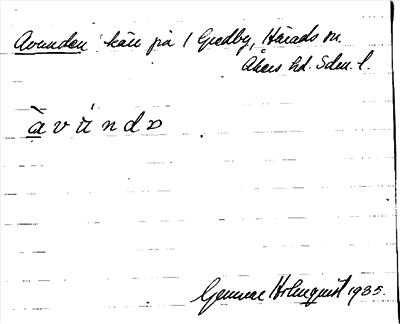 Avunden kärr på 1 Gredby, Härads sn.
Åkers hd. Sdm. l.
àvúndə
Gunnar Holmquist 1935.